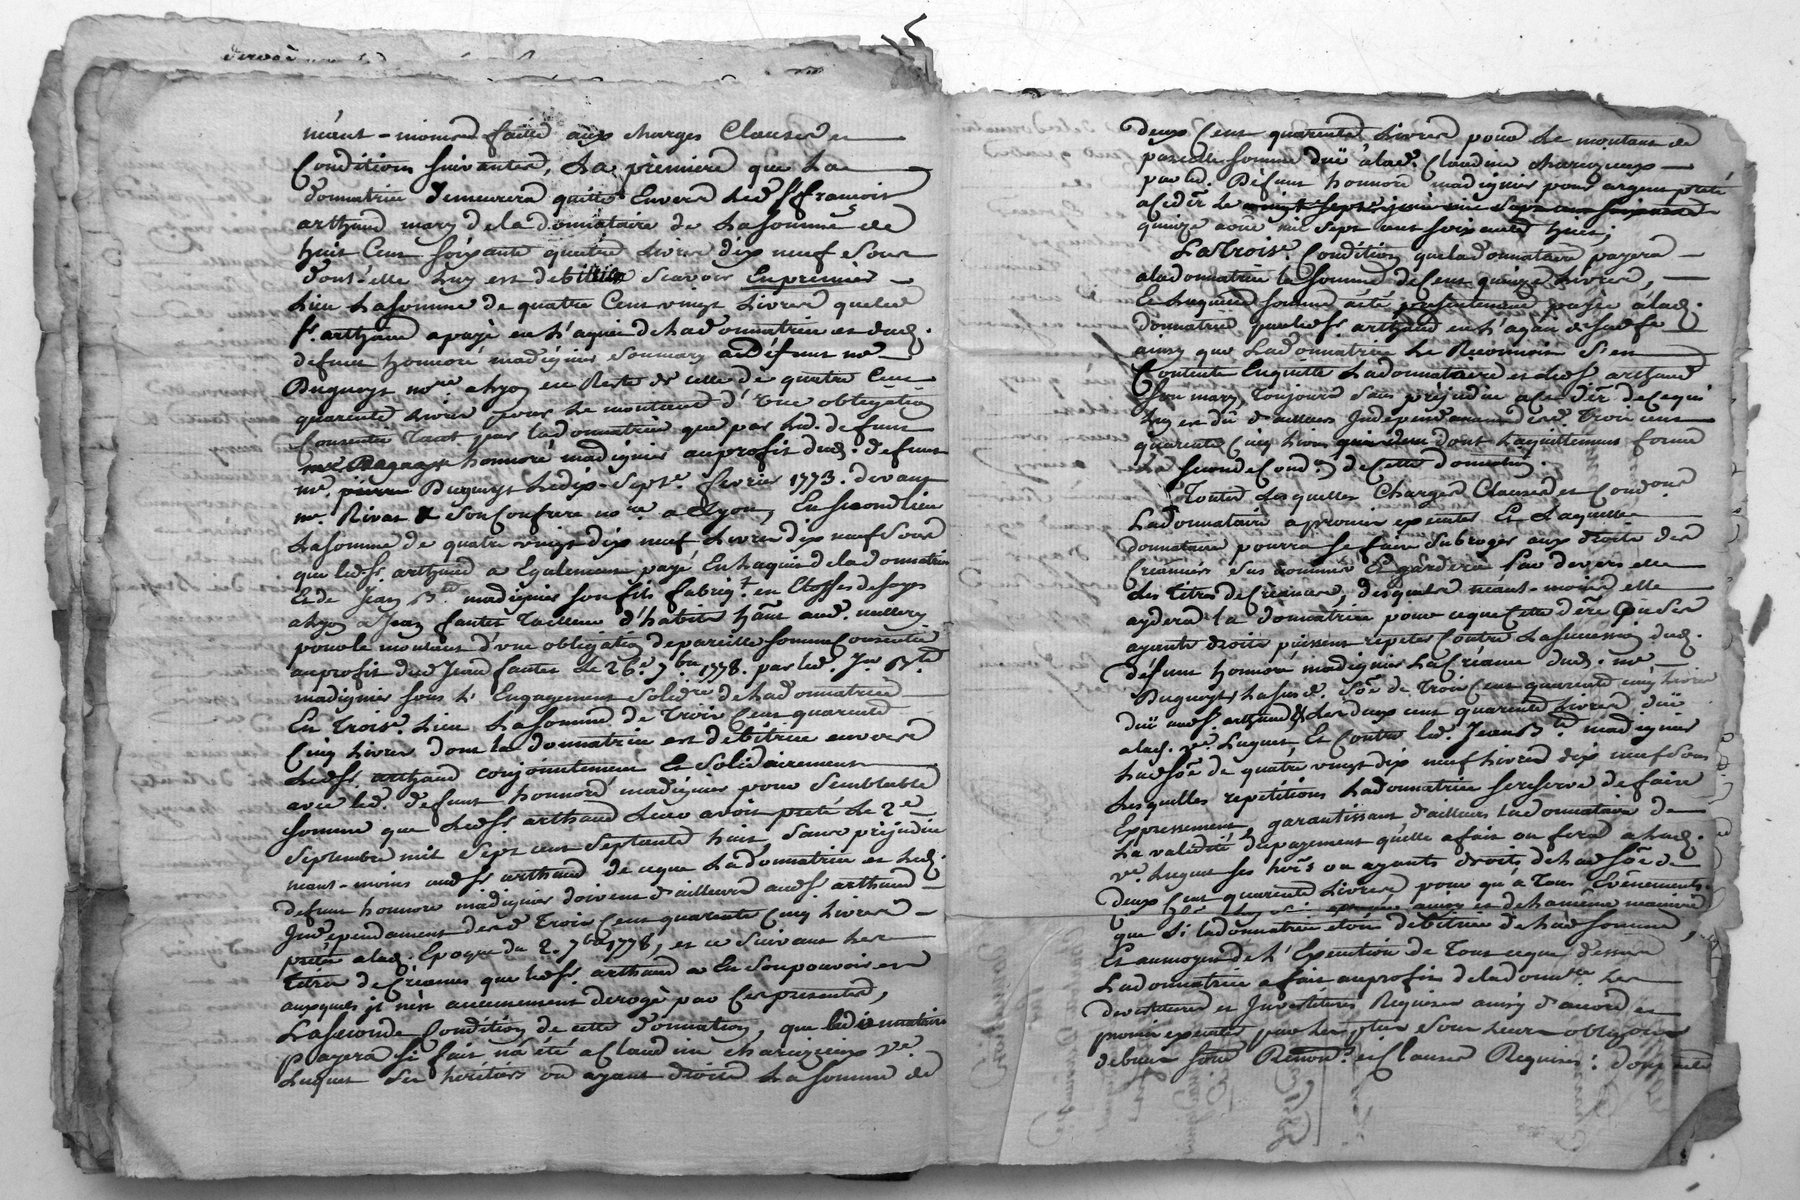 néant-moins faitte aux charges Clauses et
Conditions suivantes, La première que La
donnatrice demeurera quitte Envers Led. Sr. francois
arthaud mary de la donnataire de La somme de
huit Cent soixante quatre Livres dix neuf sous
dont elle Luy est débitrice scavoir En premier
Lieu La somme de quatre Cent vingt Livres que led.
Sr. arthaud a payé en L'aquit de La donnatrice et dud.
defunt honnoré madignier son mary a défunt me
Dugueyt nore. a Lyon en Reste de celle de quatre Cent
quarente Livres pour Le montant d'une obligation
Consentie tant par La donnatrice que par Led. defunt
honnoré madignier au profit dud. defunt
me. Dugueyt Le dix-sept fevrier 1773. devant
me. Rivat & son Confrere nore. a Lyon, En second lieu
La somme de quatre vingt dix neuf Livres dix neuf sous
que led. Sr. arthaud a Egalement payé En Laquit de la donnatrice
Et de Jean Bte. madignier son fils fabriqt. en Etoffes de soye
a Lyon a Jean fantet tailleur d'habits
pour le montant d'une obligation de pareille somme Consentie
au profit dud. Jean fantet Le 26e. 7bre 1778. par led. Jn Bte.
madignier sous L'Engagement solidre. de La donnatrice
En Troise. Lieu La somme de Trois Cent quarente
Cinq Livres dont la donnatrice est débitrice envers
Led. Sr. arthaud conjointement Et solidairement
avec led. defunt honnoré madignier pour semblable
somme que Led. Sr. arthaud Leur avoit preté Le 2e
Septembre mil sept cent septante huit, sans préjudice
néant-moins aud. Sr. arthaud de ce que La donnatrice et led.
defunt honnoré madignier doivent d'ailleurs aud. Sr. arthaud
Independament desd. Trois Cent quarente Cinq Livres
pretés a lad. Epoque du 2. 7bre 1778, et ce suivant les
titres de Créances que led. Sr. arthaud a En son pouvoir et
auxquels il n'est aucunement derogé par Ces presentes,
La seconde Condition de cette donnation, que la donnataire
payera si fait n'a été a Claudine charezieux ve.
Luquet ses heritiers ou ayant droits La somme de
deux Cent quarente Livres pour Le montant de
pareille somme düe a lad. Claudine charezieux
par led. Défunt honnoré madignier pour argent preté
a Cedit Le
quinze aout mil sept cent soixante huit;
La troise. Condition que la donnataire payera
a la donnatrice la somme de Cent quinze Livres,
Et Laquelle somme a été présentement payée a lad.
donnatrice par led. Sr. arthaud en L'aquit de sad. fe
ainsy que La donnatrice Le Reconnoit s'en
Contente Enquitte La donnataire et led. Sr. arthaud
son mary, Toujours sans préjudice a Ce dr. de ce qui
Luy est dû d'ailleurs Independament desd. Trois cent
quarente Cinq Livres dont Laquittement forme
seconde Condn. de Cette donnation.
Toutes Lesquelles Charges Clauses et Condons
La donnataire a promis executer Et Laquelle
donnataire pourra se faire subroger aux droits des
Créanciers sus nommés Et gardera par devers elle
les titres de Créances, desquels néant-moins elle
aydera la donnatrice pour ce que Cette dere. ou ses
ayants droits puissent repeter Contre La succession dud.
défunt honnoré madignier La Créance dud. me
Dugueyt La susd. soe. de Trois Cent quarente cinq livres
due aud. Sr. arthaud & Les deux cent quarente Livres due
a lad. ve. Luquet, Et Contre led. Jean Bte. madignier
Lad. soe. de quatre vingt dix neuf Livres dix neuf sous
Lesquelles repetitions La donnatrice se reserve de faire
Expressement, garantissant d'ailleurs La donnataire de
La validité du payement qu'elle a fait ou fera a lad.
ve. Luquet ses hers ou ayants droits de lad. soe. de
deux Cent quarente Livres pour qu'a Tous Evénements
ainsy et de la même manière
que si la donnatrice étoit débitrice de lad. somme,
Et au moyen de L'Execution de Tout ce que dessus
La donnatrice a fait au profit de la donnre. Les
devestitures et Investitures Requises ainsy d'accord et
promis executer par Les parties sous Leurs obligaons
de biens soum. Renons. et Clauses Requises: dont acte